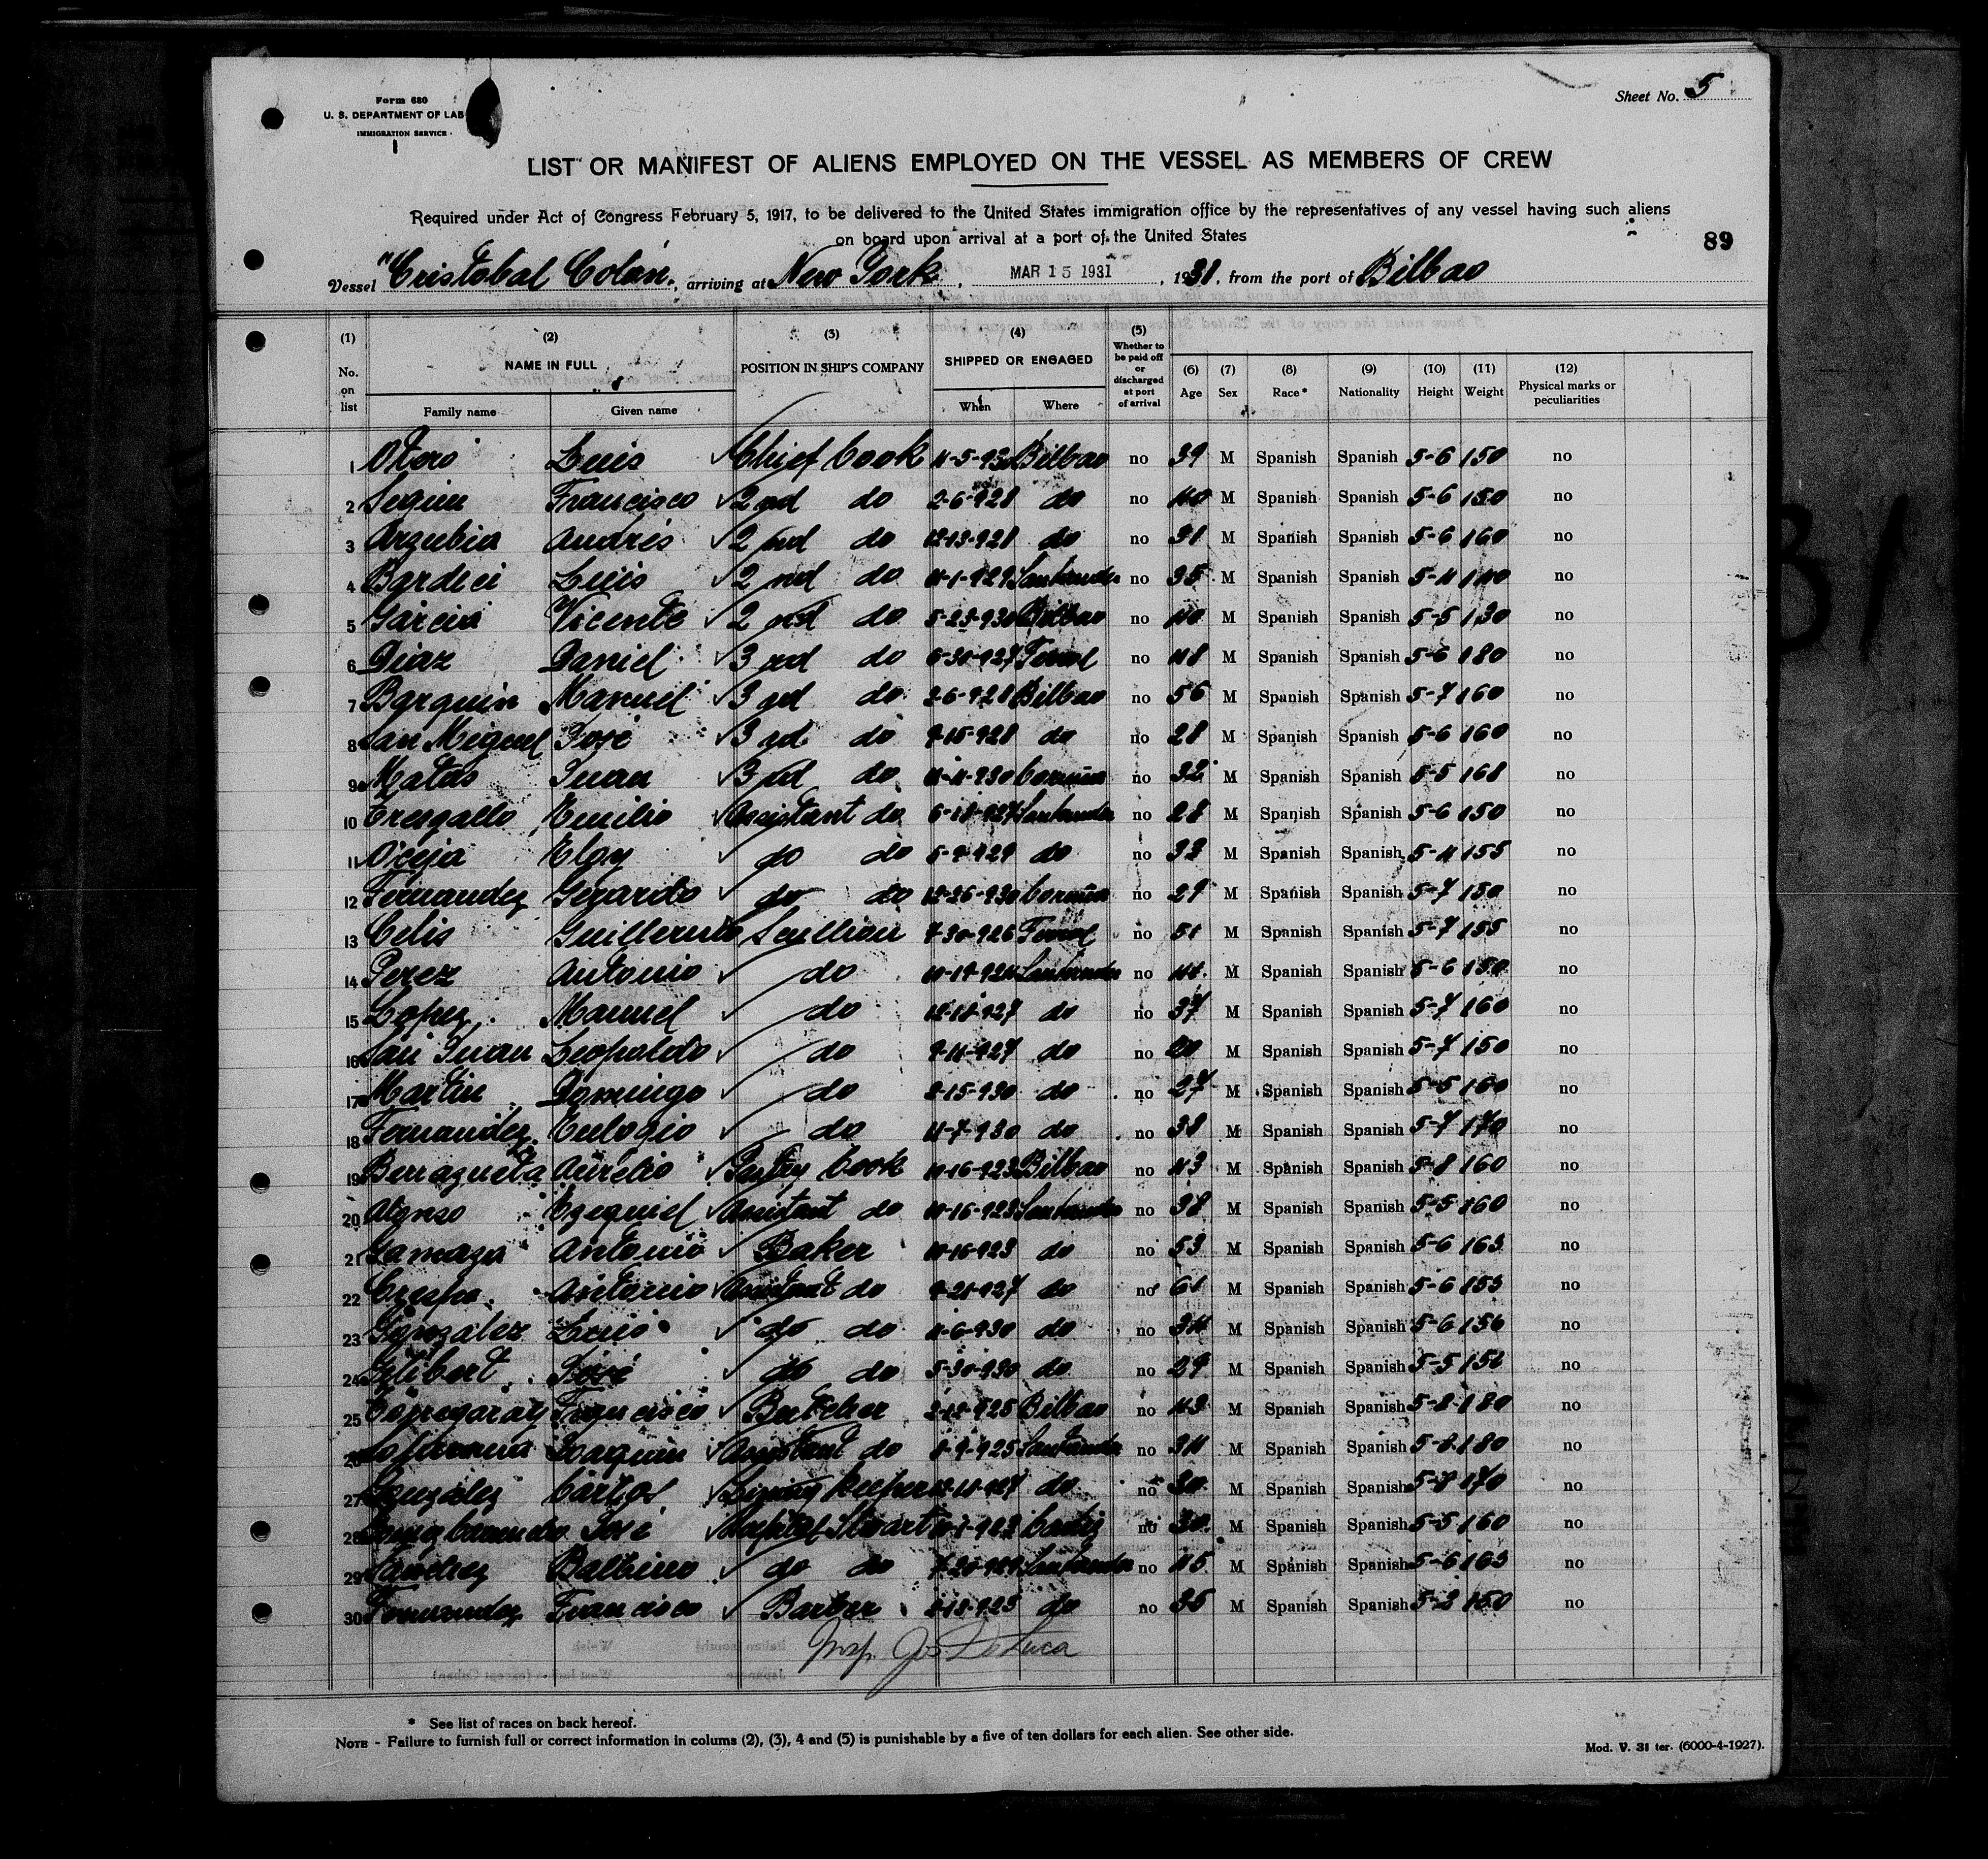 Form 680
U. S. DEPARTMENT OF LAB
IMMIGRATION SERVICE
Sheet No. 5
LIST OR MANIFEST OF ALIENS EMPLOYED ON THE VESSEL AS MEMBERS OF CREW
Required under Act of Congress February 5, 1917, to be delivered to the United States immigration office by the representatives of any vessel having such aliens
on board upon arrival at a port of the United States
89
Vessel "Cristobal Colon", arriving at New York, MAR 15 1931, 1931, from the port of Bilbao
(1) No. on list (2) NAME IN FULL Family name Given name (3) POSITION IN SHIP'S COMPANY (4) SHIPPED OR ENGAGED When Where (5) Whether to be paid off or discharged at port of arrival (6) Age (7) Sex (8) Race* (9) Nationality (10) Height (11) Weight (12) Physical marks or peculiarities
1 Otero Luis Chief Cook 11-5-930 Bilbao no 39 M Spanish Spanish 5-6 150 no
2 Seguin Francisco 2nd do 2-6-928 do no 40 M Spanish Spanish 5-6 150 no
3 Arzubia Andrés 2nd do 12-13-928 do no 31 M Spanish Spanish 5-6 160 no
4 Bardeci Luis 2nd do 11-1-929 Santander no 35 M Spanish Spanish 5-4 140 no
5 Garcia Vicente 2nd do 5-23-930 Bilbao no 40 M Spanish Spanish 5-5 130 no
6 Diaz Daniel 3rd do 6-30-927 Ferrol no 48 M Spanish Spanish 5-6 180 no
7 Barquin Manuel 3rd do 2-6-928 Bilbao no 56 M Spanish Spanish 5-7 160 no
8 San Miguel José 3rd do 9-15-928 do no 28 M Spanish Spanish 5-6 160 no
9 Matas Juan 3rd do 930 Coruña no 32 M Spanish Spanish 5-5 168 no
10 Tresgallo Emilio Assistant do 6-18-927 Santander no 28 M Spanish Spanish 5-6 150 no
11 Oceja Eloy do do 5-9-929 do no 33 M Spanish Spanish 5-4 155 no
12 Fernandez Gerardo do do 12-26-930 Coruña no 29 M Spanish Spanish 5-7 150 no
13 Celis Guillermo Scullion 7-30-926 Ferrol no 51 M Spanish Spanish 5-7 155 no
14 Perez Antonio do Santander no M Spanish Spanish 5-6 150 no
15 Lopez Manuel do 12-18-927 do no 37 M Spanish Spanish 5-7 160 no
16 San Juan Leopoldo do 927 do no 20 M Spanish Spanish 5-7 150 no
17 Martin Domingo do 2-15-930 do no 27 M Spanish Spanish 5-5 160 no
18 Fernandez Eulogio do 11-7-930 do no 38 M Spanish Spanish 5-7 170 no
19 Aurelio Pastry Cook 10-16-923 Bilbao no 43 M Spanish Spanish 5-8 160 no
20 Alonso Ezequiel Assistant do 10-16-923 Santander no 38 M Spanish Spanish 5-5 160 no
21 Gamaza Antonio Baker 10-16-923 do no 53 M Spanish Spanish 5-6 163 no
22 Crespo Antonio Assistant do 9-21-927 do no 61 M Spanish Spanish 5-6 153 no
23 Gonzalez Luis do do 11-6-930 do no 34 M Spanish Spanish 5-6 156 no
24 Gilibert José do do 5-30-930 do no 29 M Spanish Spanish 5-5 no
25 Francisco Butcher 925 Bilbao no 43 M Spanish Spanish 5-8 180 no
26 Joaquin Assistant do 8-9-925 Santander no 34 M Spanish Spanish 5-8 180 no
27 Gonzalez Carlos keeper do no 30 M Spanish Spanish 170 no
28 José Hospital Stuart Cadiz no 30 M Spanish Spanish 5-5 160 no
29 Balbino do do Santander no 45 M Spanish Spanish 5-6 163 no
30 Fernandez Francisco Barber do no 35 M Spanish Spanish 5-3 150 no
Insp. Jos DeLuca
* See list of races on back hereof.
NOTE - Failure to furnish full or correct information in colums (2), (3), 4 and (5) is punishable by a five of ten dollars for each alien. See other side.
Mod. V. 31 ter. (6000-4-1927).